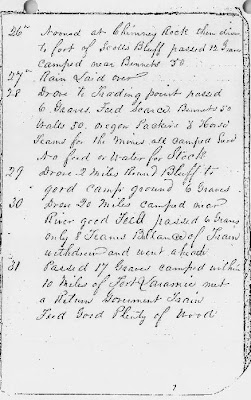 26th Nooned at Chimney Rock then drove
to foot of Scotts Bluff passed 12 Graves
camped near Bennets 50
27th Rain Laid over
28 Drove to Trading point passed
6 Graves. Feed Scarce Bennets 50
Wales 50. oregon Packers & Horse
Teams for the mines all camped here
No feed or Water for Stock
29 Drove 2 miles Round Bluff to
good camp ground 6 Graves
30 Drove 20 Miles camped near
River good Feed passed 6 Graves
only 8 Teams Ballance of Train
withdrew and went ahead
31 Passed 17 Graves camped within
10 Miles of Fort Laramie met
a Return Goverment Train
Feed Good Plenty of Wood